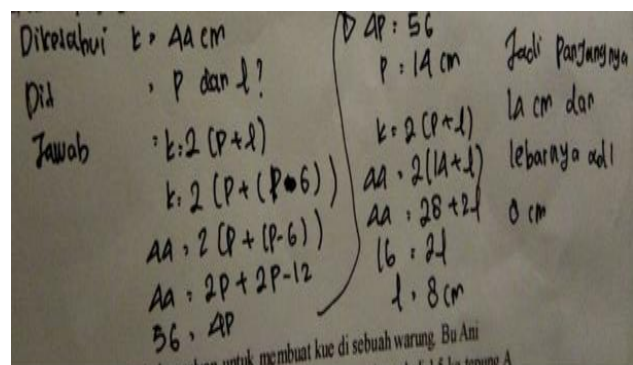 Diketahui k = 44 cm
Dit : P dan l?
Jawab : k = 2 (P+l)
k = 2 (P + (P-6))
44 = 2 (P + (P-6))
44 = 2P + 2P-12
56 = 4P
4P = 56
P = 14 cm
k = 2 (P+l)
44 = 2(14+l)
44 = 28 + 2l
16 = 2l
l = 8 cm
Jadi panjangnya
14 cm dan
lebarnya adl
8 cm
untuk membuat kue di sebuah warung. Bu Ani
tepung A